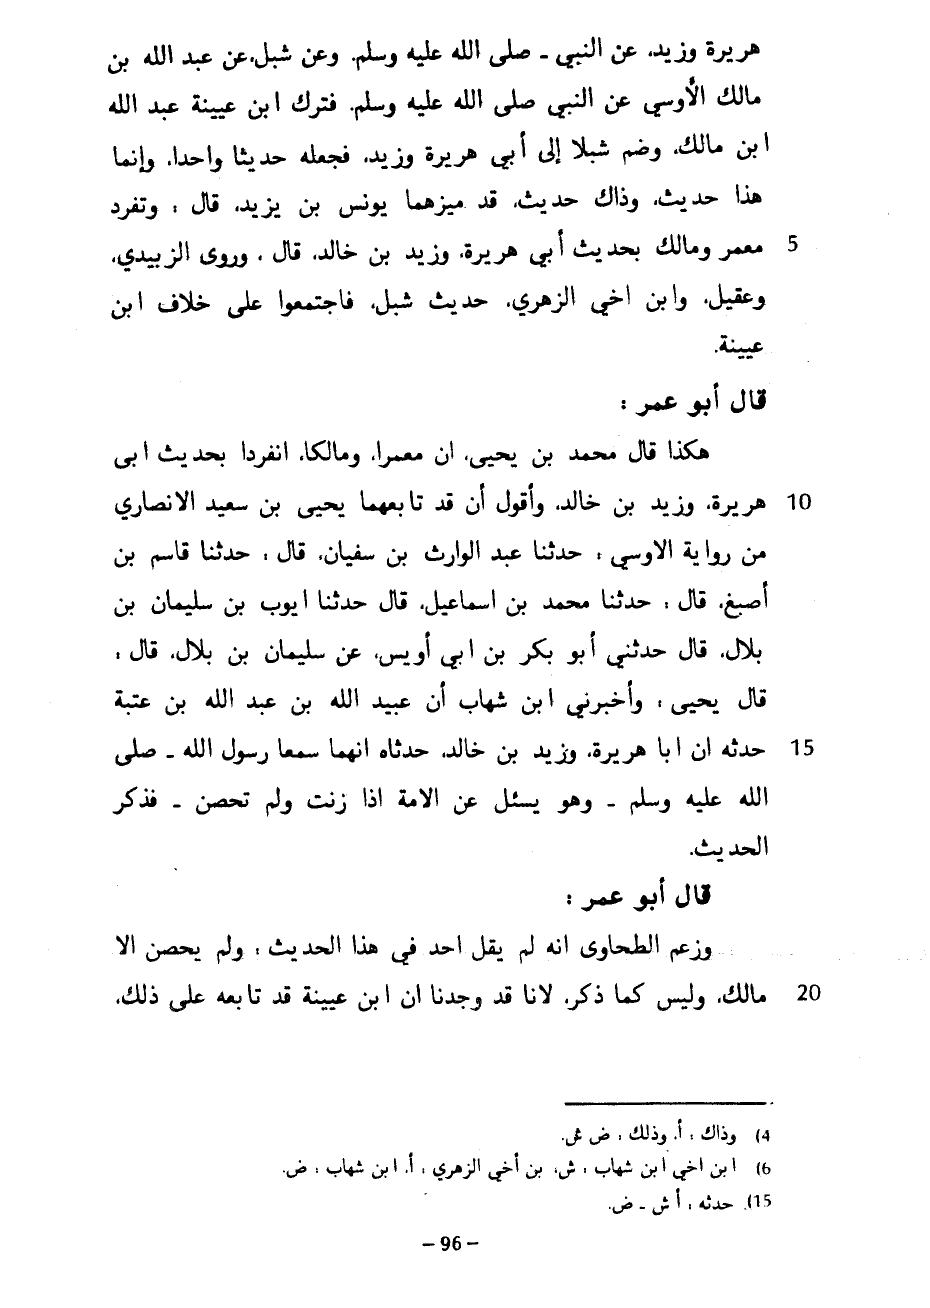 هريرة وزيد، عن النبي ـ صلى الله عليه وسلم. وعن شبل،عن عبد الله بن
مالك الأوسي عن النبي صلى الله عليه وسلم. فترك ابن عيينة عبد الله
ابن مالك، وضم شبلا إلى أبي هريرة وزيد، فجعله حديثا واحدا، وإنما
هذا حديث، وذاك حديث، قد ميزهما يونس بن يزيد، قال : وتفرد
5 معمر ومالك بحديث أبي هريرة، وزيد بن خالد، قال . وروى الزبيدي،
وعقيل، وابن اخي الزهري، حديث شبل، فاجتمعوا على خلاف ابن
عيينة.
قال أبو عمر :
هكذا قال محمد بن يحيى، ان معمرا، ومالكا، انفردا بحديث ابى
10 هريرة، وزيد بن خالد، وأقول أن قد تابعهما يحيى بن سعيد الانصاري
من رواية الاوسي : حدثنا عبد الوارث بن سفيان، قال : حدثنا قاسم بن
أصبغ، قال : حدثنا محمد بن اسماعيل، قال حدثنا ايوب بن سليمان بن
بلال، قال حدثني أبو بكر بن ابي أويس، عن سليمان بن بلال، قال :
قال يحيى : وأخبرني ابن شهاب أن عبيد الله بن عبد الله بن عتبة
15 حدثه ان ابا هريرة، وزيد بن خالد، حدثاه انهما سمعا رسول الله ـ صلى
الله عليه وسلم ـ وهو يسئل عن الامة اذا زنت ولم تحصن ـ فذكر
الحديث.
قال أبو عمر :
وزعم الطحاوى انه لم يقل احد في هذا الحديث : ولم يحصن الا
20 مالك، وليس كما ذكر، لانا قد وجدنا ان ابن عيينة قد تابعه على ذلك،
4) وذاك : أ. وذلك : ض غى.
6) ابن اخي ابن شهاب : ش، بن أخي الزهري : أ. ابن شهاب : ض.
15) حدثه : أ ش ـ ض.
– 96 –